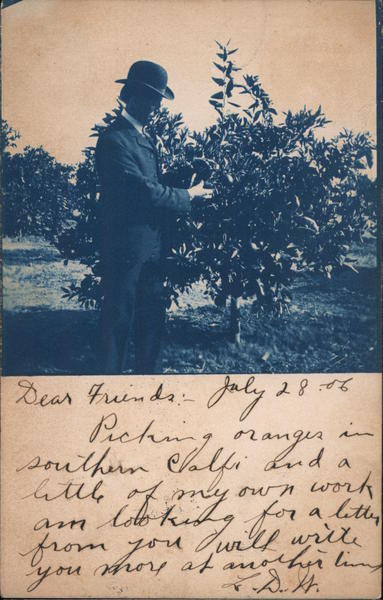 Dear Friends:- July 28-06
Picking oranges in
southern Calfi and a
little of my own work
am looking for a letter
from you will write
you more at another time
L. D. H.